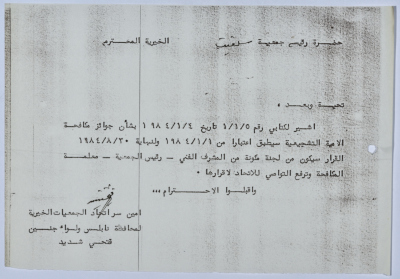 حضرة رئيس جمعية سنجل الخيرية المحترم
تحية وبعد ،
اشير لكتابي رقم ١/١/٥ تاريخ ١٩٨٤/١/٤ بشأن جوائز مكافحة
الامية التشجيعية سيطبق اعتبارا من ١٩٨٤/١/١ ولنهاية ١٩٨٤/٨/٣٠
القرار سيكون من لجنة مكونة من المشرف الفني - رئيس الجمعية - معلمة
المكافحة وترفع التواصي للاتحاد لاقرارها .
واقبلوا الاحترام ...
امين سر اتحاد الجمعيات الخيرية
لمحافظة نابلس ولواء جنين
فتحي شديد